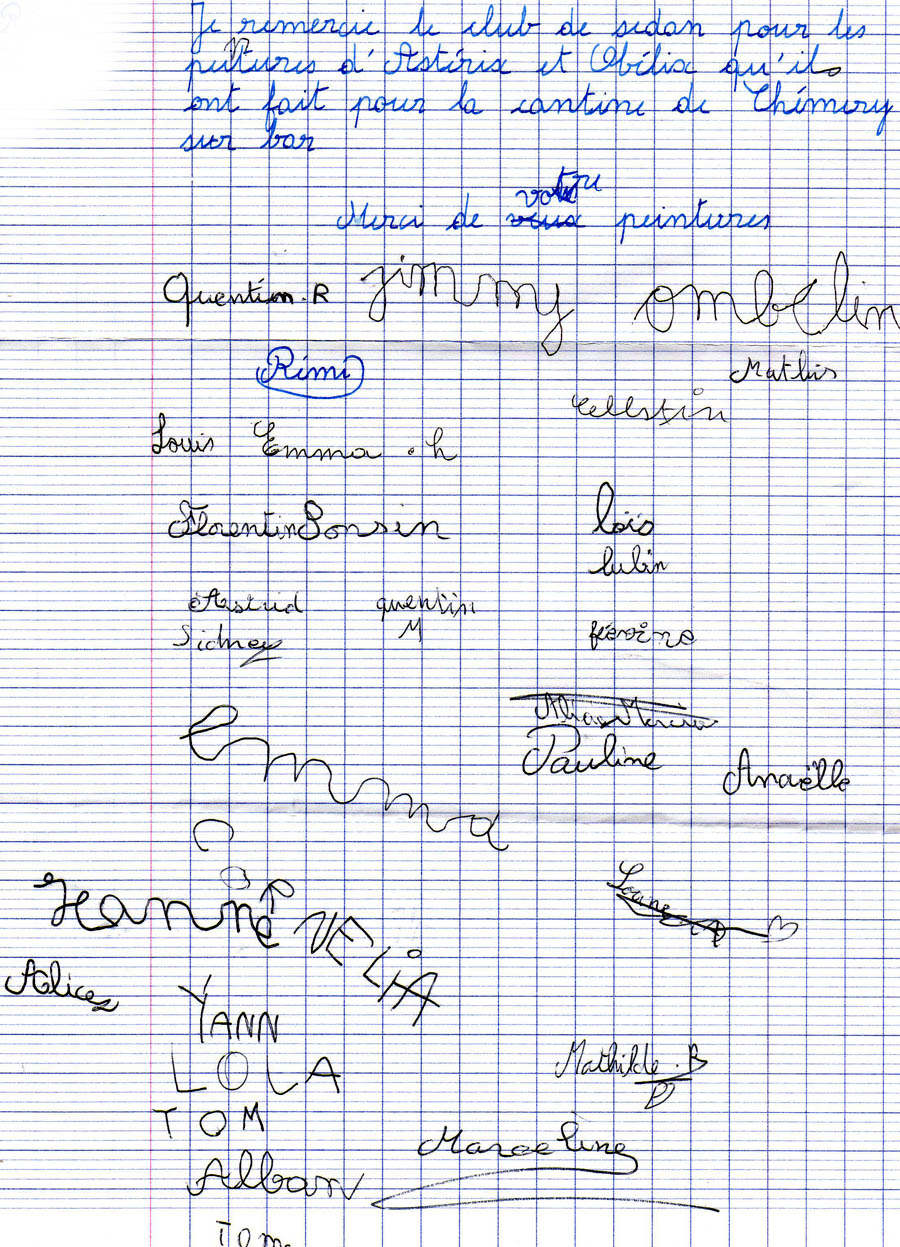 Je remercie le club de sedan pour les
pintures d'Astérix et Obélix qu'ils
ont fait pour la cantine de Chémery
sur bar
votre
Merci de peintures
Quentin.R Jimmy ombelin
Rémi Mathis
Celestin
Louis Emma.h
Florentin Ponsin loïs
lubin
Astrid quentin
M
Sidney
Emma
Pauline Anaëlle
Jeanne
VELIA
Alice
YANN
LOLA Mathilde.B
TOM
Marceline
Alban
Tom